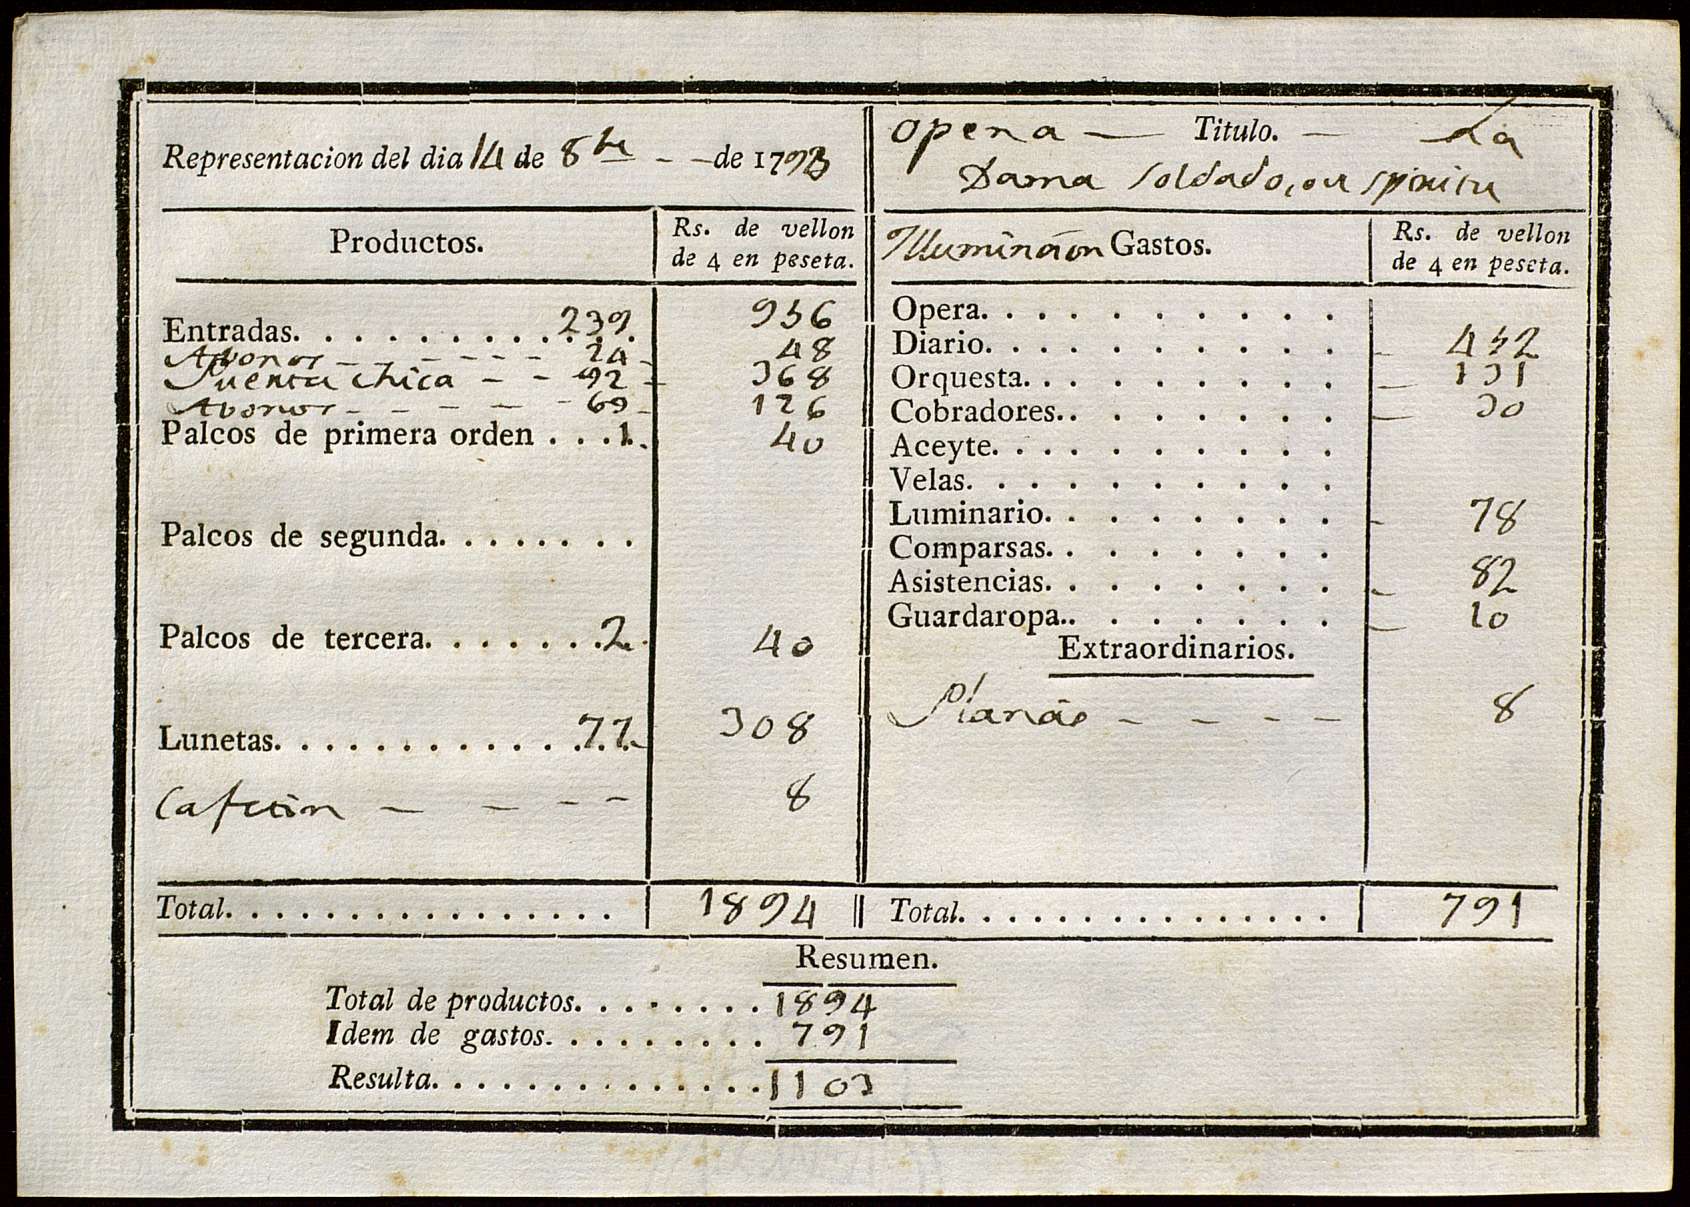 Representacion del dia 14 de 8bre - - de 1793
Opera — Titulo. — La
Dama soldado,
Productos.
Rs. de vellon
de 4 en peseta.
Entradas. . . . . . . . . . 239. 956
Abonos - - - - - 24 - 48
Puerta chica - - 92 - 368
Abonos - - - - - 63 - 126
Palcos de primera orden . . . 1. 40
Palcos de segunda. . . . . . . .
Palcos de tercera. . . . . . . 2. 40
Lunetas. . . . . . . . . . . . . 77. 308
Cafetin - - - - 8
Total. . . . . . . . . . . . . . . . 1894
Illuminaon Gastos.
Rs. de vellon
de 4 en peseta.
Opera. . . . . . . . . .
Diario. . . . . . . . . . - 452
Orquesta. . . . . . . . . - 131
Cobradores. . . . . . . . - 30
Aceyte. . . . . . . . . .
Velas. . . . . . . . . .
Luminario. . . . . . . . - 78
Comparsas. . . . . . . .
Asistencias. . . . . . . . - 82
Guardaropa.. . . . . . . - 10
Extraordinarios.
Planás - - - - 8
Total. . . . . . . . . . . . . . . . 791
Resumen.
Total de productos. . . . . . . . 1894
Idem de gastos. . . . . . . . . 791
Resulta. . . . . . . . . . . . . . 1103